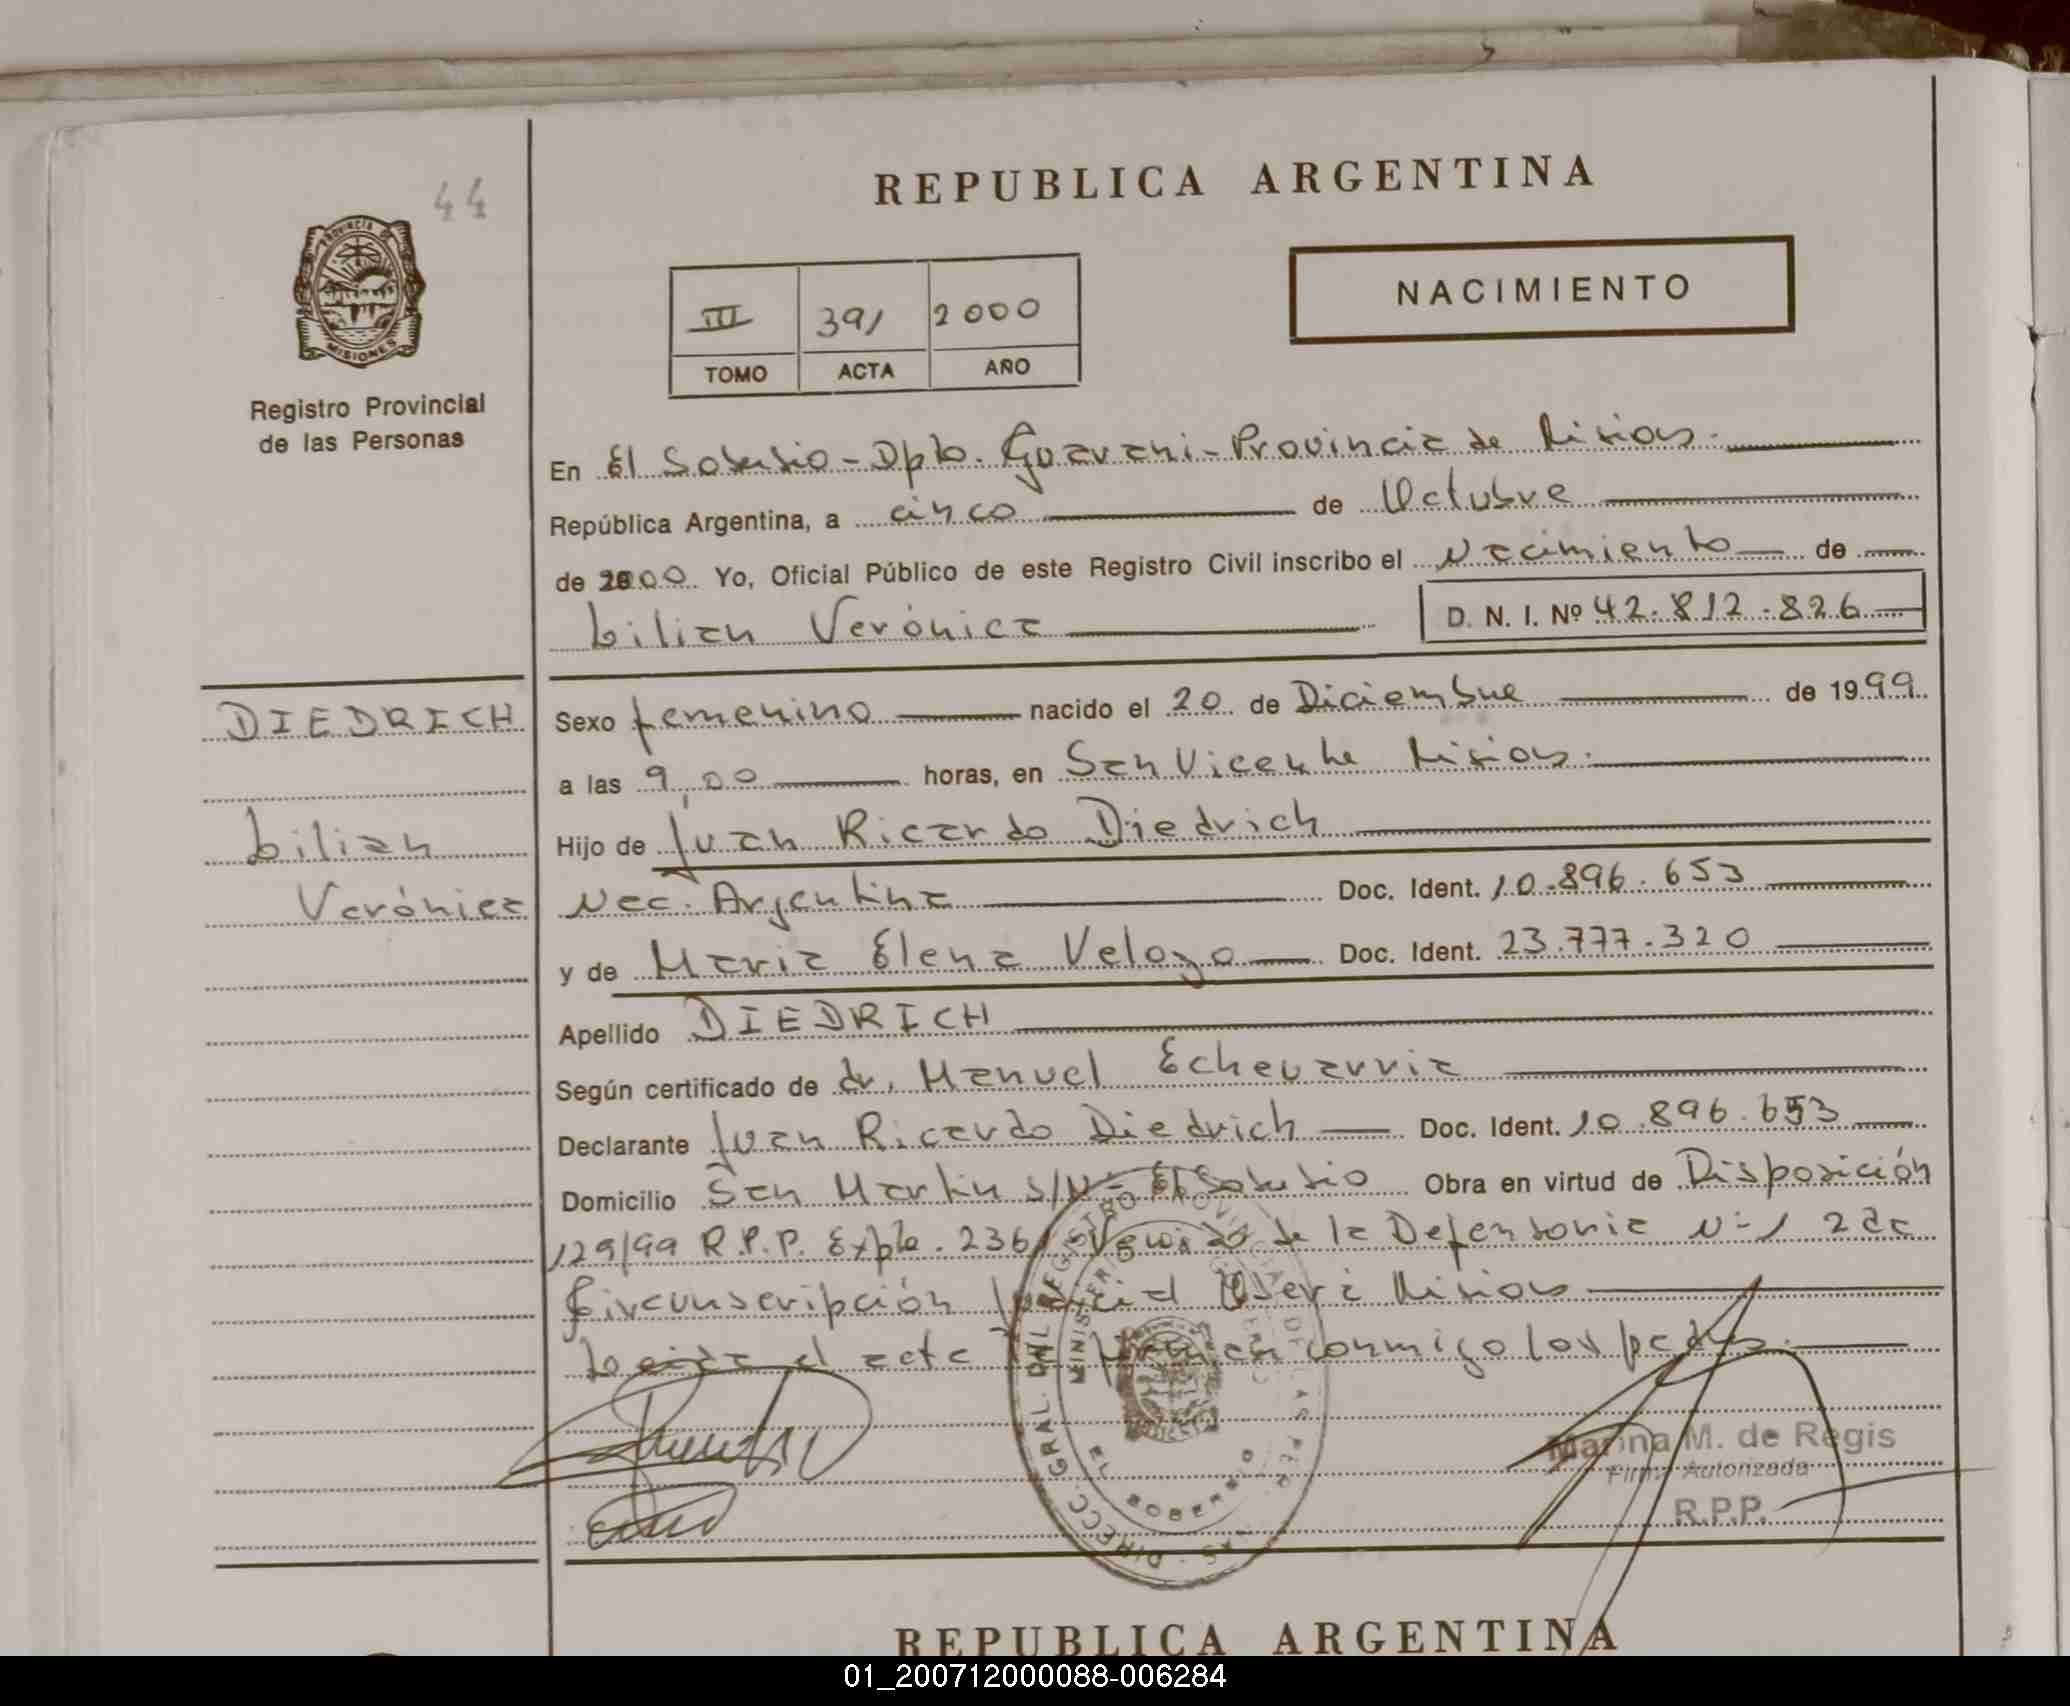 44
REPUBLICA ARGENTINA
PROVINCIA DE
MISIONES
NACIMIENTO
III 391 2000
TOMO ACTA AÑO
Registro Provincial
de las Personas
En El Soberbio - Dpto. Guarani - Provincia de Misiones.
República Argentina, a cinco de Octubre
de 2000. Yo, Oficial Público de este Registro Civil inscribo el Nacimiento de
Lilian Verónica D. N. I. Nº 42.812.826
DIEDRICH
Lilian
Verónica
Sexo femenino nacido el 20 de Diciembre de 1999
a las 9,00 horas, en San Vicente Misiones.
Hijo de Juan Ricardo Diedrich
Nac. Argentina Doc. Ident. 10.896.653
y de Maria Elena Velozo Doc. Ident. 23.777.320
Apellido DIEDRICH
Según certificado de dr. Manuel Echevarria
Declarante Juan Ricardo Diedrich Doc. Ident. 10.896.653
Domicilio San Martin s/Nº El Soberbio Obra en virtud de Disposición
129/99 R.P.P. Expte. 236 de la Defensoria Nº 1 2da
Circunscripción Judicial Oberá Misiones
Leida el acta conmigo los padres.
DIRECC. GRAL. DEL REGISTRO PROVINCIAL DE LAS PER
MINISTERIO
EL SOBERBIO
Marina M. de Regis
Firma Autorizada
R.P.P.
REPUBLICA ARGENTINA
01_200712000088-006284